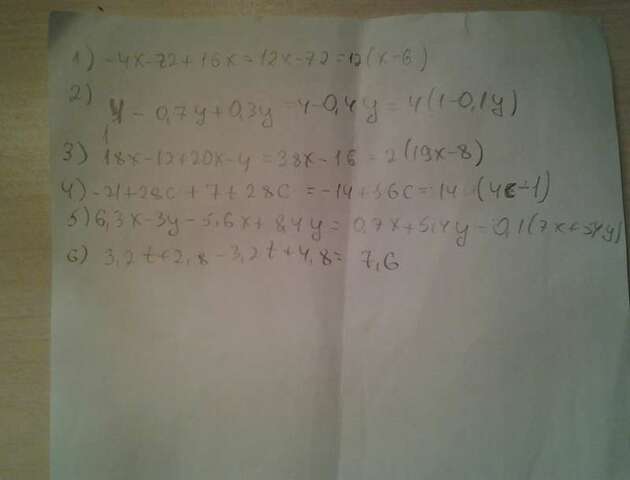 1) -4x-72+16x=12x-72=12(x-6)
2) 4-0,7y+0,3y=4-0,4y=4(1-0,1y)
3) 18x-12+20x-4=38x-16=2(19x-8)
4) -21+28c+7+28c=-14+56c=14(4c-1)
5) 6,3x-3y-5,6x+8,4y=0,7x+5,4y=0,1(7x+54y)
6) 3,2t+2,8-3,2t+4,8=7,6